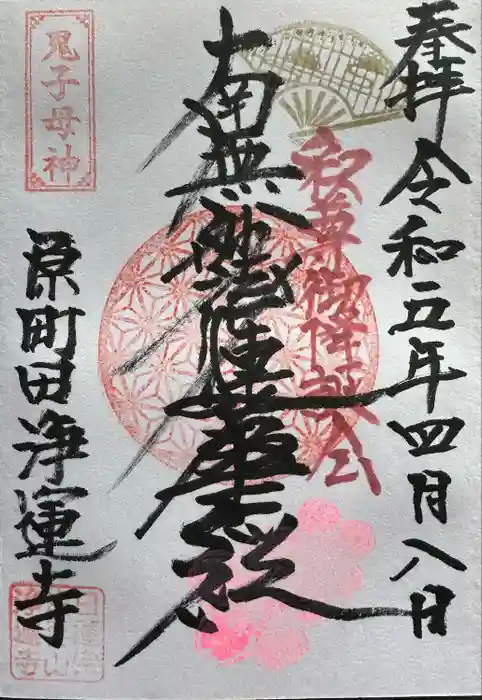 奉拝 令和五年四月八日
釈尊御降誕会
南無妙法蓮華経
鬼子母神
原町田浄運寺